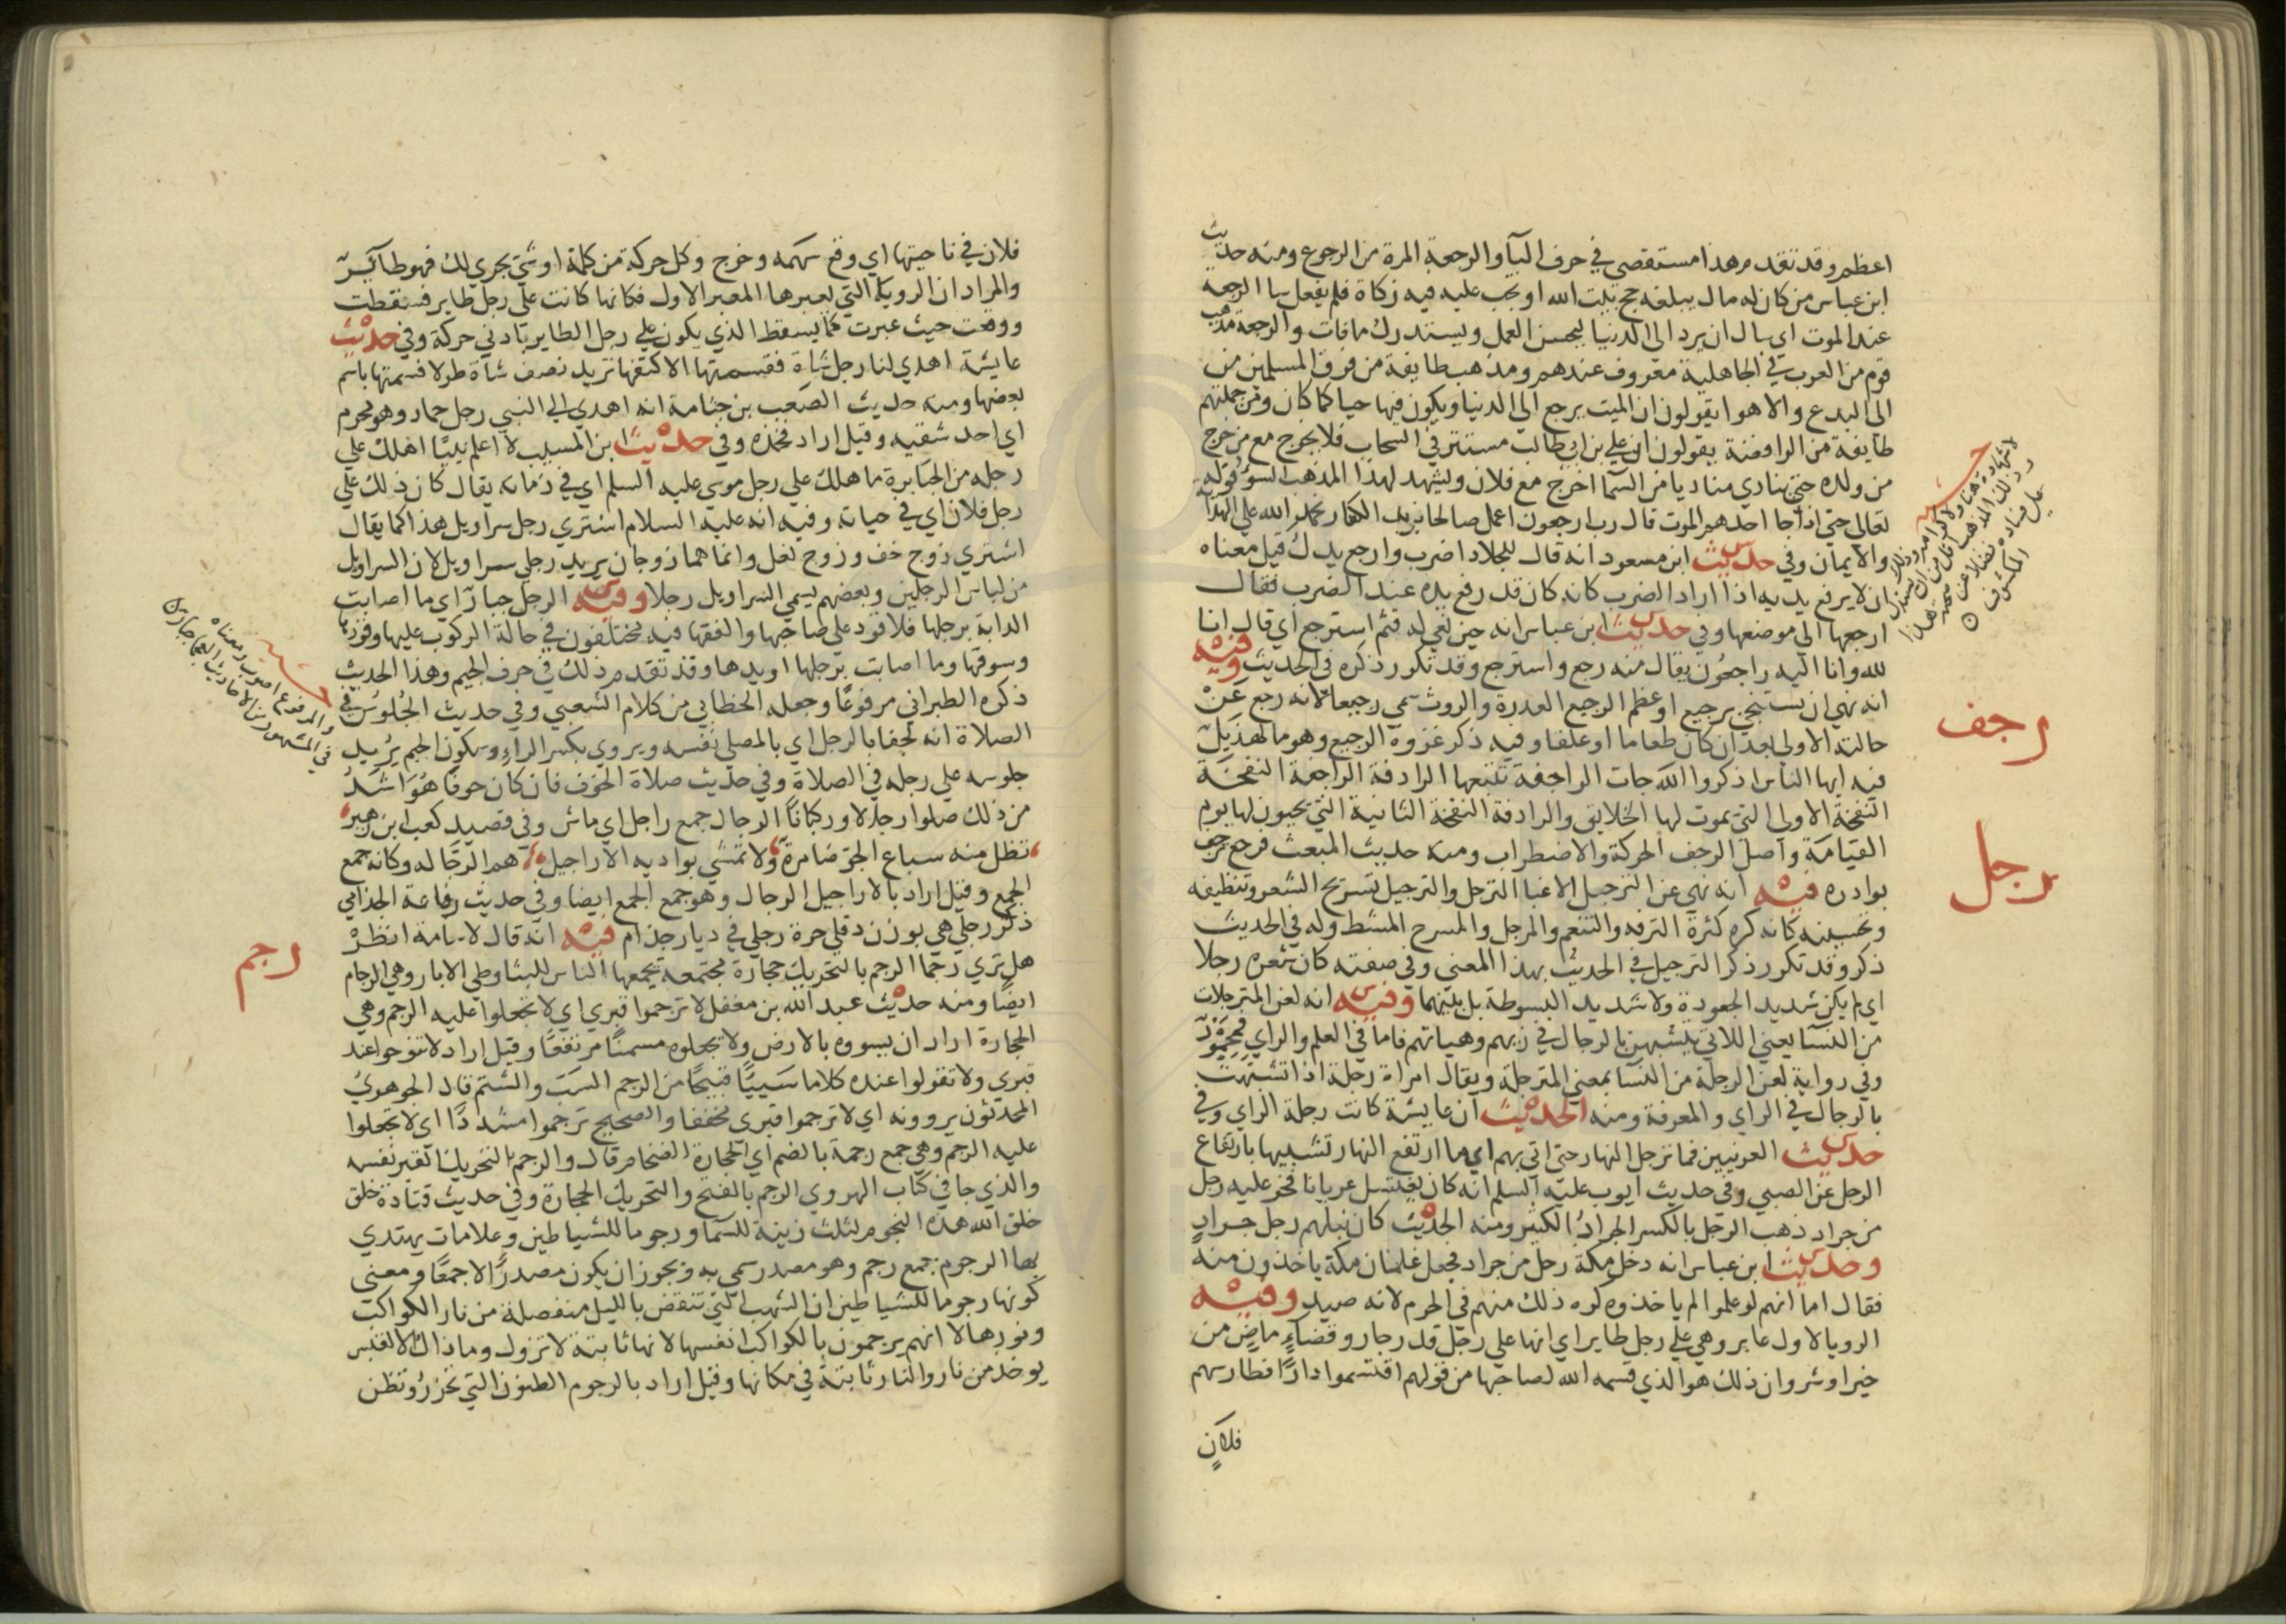 اعظم وقد تقدم هذا مستقصي في حرف البآ والرجعة المرة من الرجوع ومنه حديث
ابن عباس من كان له مال يبلغه حج بيت الله او تجب عليه فيه زكاة فلم يفعل سال الرجعة
عند الموت اي سال ان يرد الي الدنيا ليحسن العمل ويستدرك مافات والرجعة مذهب
قوم من العرب في الجاهلية معروف عندهم ومذهب طايفة من فرق المسلمين من
الى البدع والاهوا يقولون ان الميت يرجع الي الدنيا ويكون فيها حيا كما كان ومن جملتهم
طايفة من الرافضة يقولون ان علي بن ابي طالب مستتر في السحاب فلا يخرج مع من خرج
من ولده حتي ينادي مناد يا من السما اخرج مع فلان ويشهد لهذا المذهب السؤ قوله
تعالي حتي اذا جا احدهم الموت قال رب ارجعون اعمل صالحا يريد الكفار نحمد الله علي الهداة
والايمان وفي حديث ابن مسعود انه قال للجلاد اضرب وارجع يدك قيل معناه
ان لا يرفع يديه اذا اراد الضرب كانه كان قد رفع يده عند الضرب فقال
ارجعها الي موضعها وفي حديث ابن عباس انه حين نعي له قثم استرجع اي قال انا
لله وانا اليه راجعون يقال منه رجع واسترجع وقد تكرر ذكره في الحديث وفيه
انه نهي ان يستنجي برجيع او عظم الرجيع العدرة والروث سمي رجيعا لانه رجع عن
حالته الاولي بعد ان كان طعاما او علفا وفيه ذكر غزوة الرجيع وهو ما لهذيل
رجف
فيه ايها الناس اذكروا الله جات الراجفة تتبعها الرادفة الراجفة النفخة
النفخة الاولي التي يموت لها الخلايق والرادفة النفخة الثانية التي يحيون لها يوم
القيامة واصل الرجف الحركة والاضطراب ومنه حديث المبعث فرجع ترجف
رجل
بوادره فيه انه نهي عن الترجل الاغبا الترجل والترجيل تسريح الشعر وتنظيفه
وتحسينه كانه كره كثرة الترفه والتنعم والمرجل والمسرح المشط وله في الحديث
ذكر وقد تكرر ذكر الترجيل في الحديث بهذا المعني وفي صفته كان شعره رجلا
اي لم يكن شديد الجعودة ولا شديد البسوطة بل بينهما وفيه انه لعن المترجلات
من النسآ يعني اللاتي يتشبهن بالرجال في زيهم وهياتهم فاما في العلم والراي فمحمود
وفي رواية لعن الرجلة من النسآ بمعني المترجلة ويقال امراة رجلة اذا تشبهت
بالرجال في الراي والمعرفة ومنه الحديث ان عايشة كانت رجلة الراي وفي
حديث العرنيين فما ترجل النهار حتي اتي بهم اي ما ارتفع النهار تشبيها بارتفاع
الرجل عن الصبي وفي حديث ايوب عليه السلم انه كان يغتسل عريانا فخر عليه رجل
من جراد ذهب الرجل بالكسر الجراد الكثير ومنه الحديث كان نبلهم رجل جراد
وحديث ابن عباس انه دخل مكة رجل من جراد فجعل غلمان مكة ياخذون منه
فقال اما انهم لو علموا لم ياخذوه كره ذلك منهم في الحرم لانه صيد وفيه
الرويا لاول عابر وهي علي رجل طاير اي انها علي رجل قدر جار وقضآء ماض من
خير او شر وان ذلك هو الذي قسمه الله لصاحبها من قولهم اقتسموا دارا فطار سهم
فلان
فلان في ناحيتها اي وقع سهمه وخرج وكل حركة من كلمة او شي يجري لك فهو طاير
والمراد ان الرويا التي يعبرها المعبر الاول فكانها كانت علي رجل طاير فسقطت
ووقعت حيث عبرت كما يسقط الذي يكون علي رجل الطاير بادني حركة وفي حديث
عايشة اهدي لنا رجل شاة فقسمتها الا كتفها تريد نصف شاة طولا فسمتها باسم
بعضها ومنه حديث الصعب بن جثامة انه اهدي الي النبي رجل حمار وهو محرم
اي احد شقيه وقيل اراد فخذه وفي حديث ابن المسيب لا اعلم نبيا اهلك علي
رجله من الجبابرة ما هلك علي رجل موسي عليه السلم اي في زمانه يقال كان ذلك علي
رجل فلان اي في حياته وفيه انه عليه السلام اشتري رجل سراويل هذا كما يقال
اشتري زوج خف وزوج نعل وانما هما زوجان يريد رجلي سراويل لان السراويل
من لباس الرجلين وبعضهم يسمي السراويل رجلا وفيه الرجل جبار اي ما اصابت
الدابة برجلها فلا قود علي صاحبها والفقها فيه مختلفون في حالة الركوب عليها وقودها
وسوقها وما اصابت برجلها او يدها وقد تقدم ذلك في حرف الجيم وهذا الحديث
ذكره الطبراني مرفوعا وجعله الخطابي من كلام الشعبي وفي حديث الجلوس في
الصلاة انه لجفا بالرجل اي بالمصلي نفسه ويروي بكسر الراء وسكون الجيم يريد
جلوسه علي رجله في الصلاة وفي حديث صلاة الخوف فان كان خوفا هو اشد
من ذلك صلوا رجالا وركبانا الرجال جمع راجل اي ماش وفي قصيد كعب ابن زهير
تظل منه سباع الجو ضامرة ولا تمشي بواديه الاراجيل هم الرجالة وكانه جمع
الجمع وقيل اراد بالاراجيل الرجال وهو جمع الجمع ايضا وفي حديث رفاعة الجذامي
ذكر رجلي هي بوزن دفلي حرة رجلي في ديار جذام فيه انه قال لاسامة انظر
رجم
هل تري رجما الرجم بالتحريك حجارة مجتمعة يجمعها الناس للبنا وطي الابار وهي الرجام
ايضا ومنه حديث عبد الله بن مغفل لا ترجموا قبري اي لا تجعلوا عليه الرجم وهي
الحجارة اراد ان يسووه بالارض ولا تجعلوه مسنما مرتفعا وقيل اراد لا تنوحوا عند
قبري ولا تقولوا عنده كلاما سييا قبيحا من الرجم السب والشتم قال الجوهري
المحدثون يروونه اي لا ترجموا قبري مخففا والصحيح ترجموا مشددا اي لا تجعلوا
عليه الرجم وهي جمع رجمة بالضم اي الحجارة الضخام قال والرجم بالتحريك القبر نفسه
والذي جا في كتاب الهروي الرجم بالفتح والتحريك الحجارة وفي حديث قتادة خلق
خلق الله هذه النجوم لثلث زينة للسما ورجوما للشياطين وعلامات يهتدي
بها الرجوم جمع رجم وهو مصدر سمي به ويجوز ان يكون مصدرا لا جمعا ومعني
كونها رجوما للشياطين ان الشهب التي تنقض بالليل منفصلة من نار الكواكب
ونورها لا انهم يرجمون بالكواكب انفسها لانها ثابتة لا تزول وما ذاك الا كقبس
يوخذ من نار والنار ثابتة في مكانها وقيل اراد بالرجوم الظنون التي تحزر وتظن